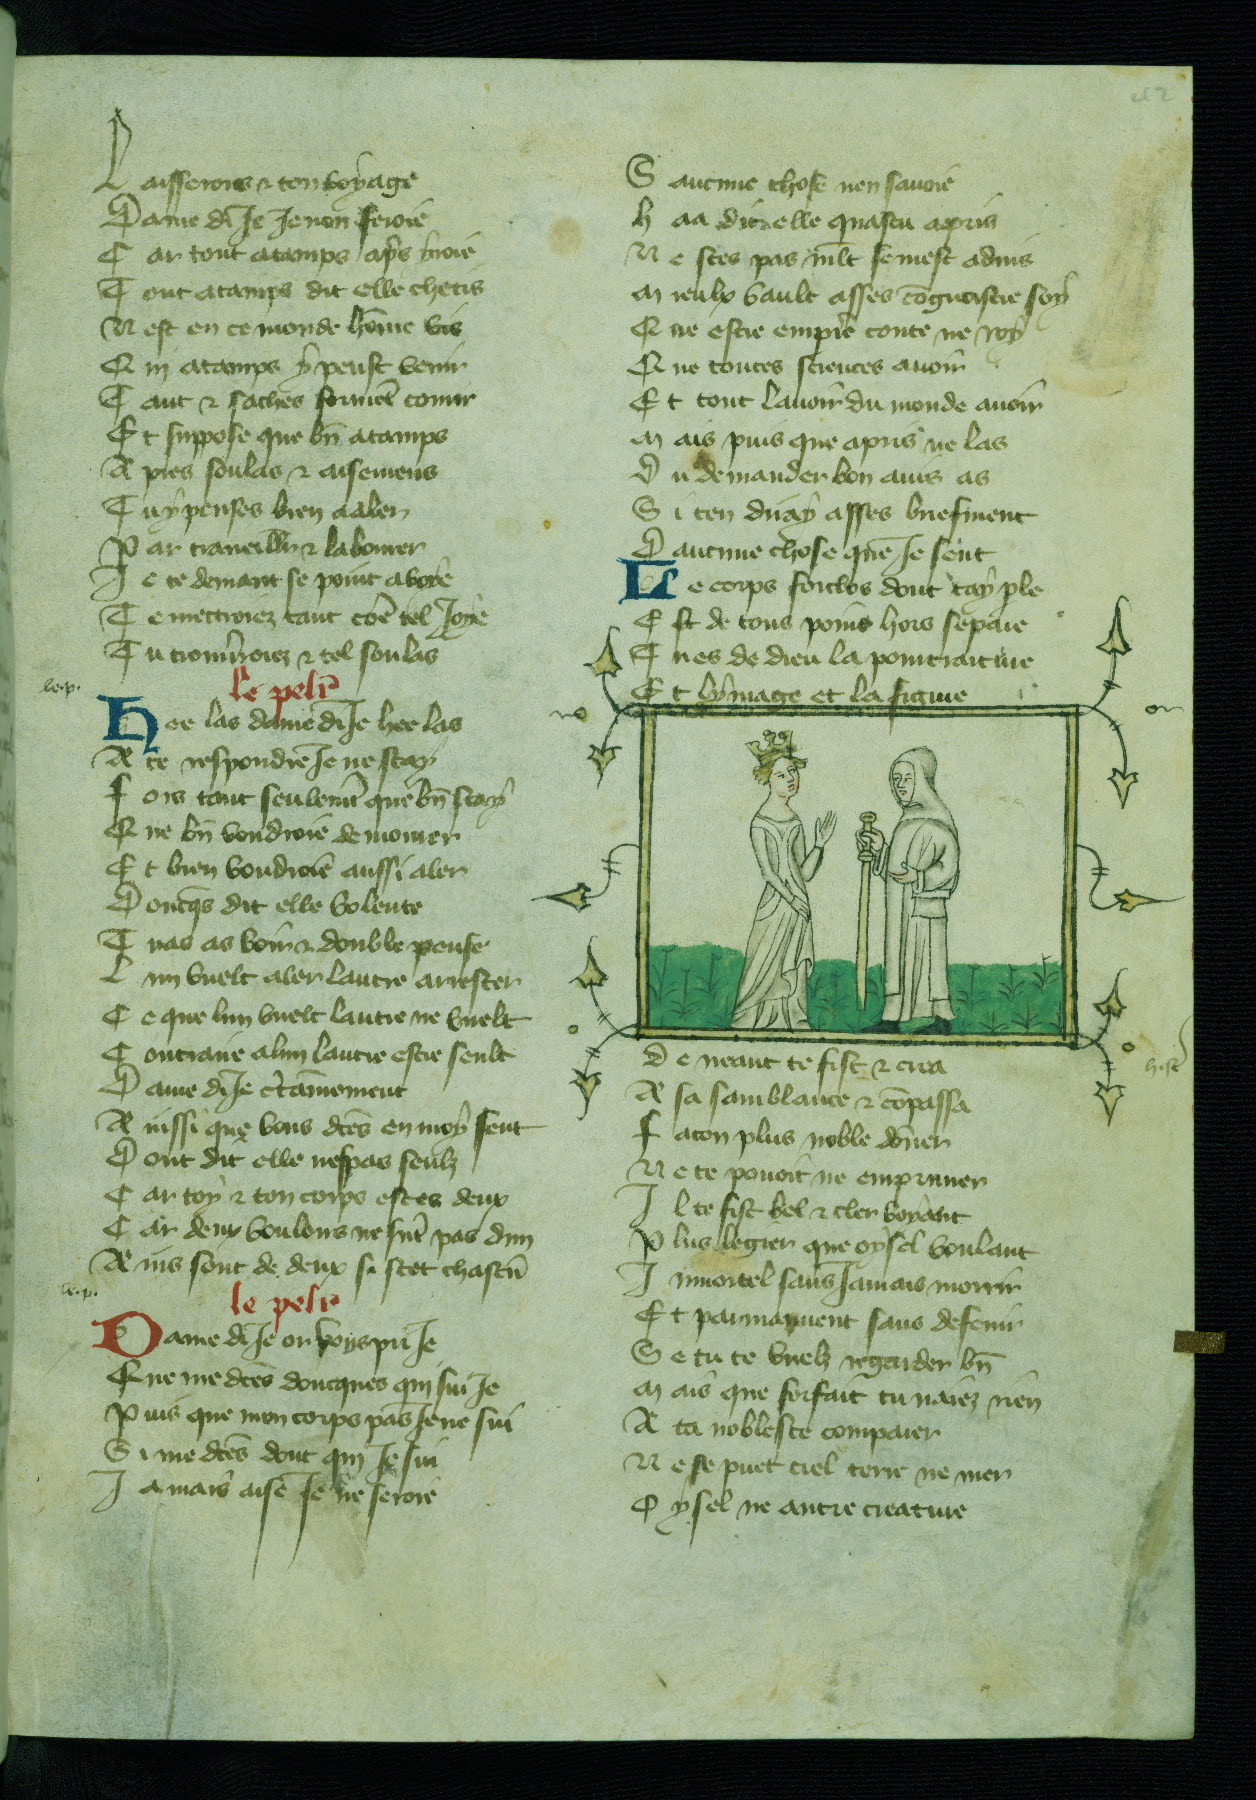 Laisseroies ⁊ ton voyage
Dame di Je Je non feroie
Car tout atamps ap̃s yroie
Tout atamps dit elle chetis
Nest en ce monde hõme vis
Qui atamps y peust venir
Tant ⁊ saches
Et suppose que bñ atamps
Apres soulas ⁊ aisemens
Tu y penses bien a aler
Par traveillier ⁊ labourer
Je te demant se point a
Te mettroiez tant tel Joye
Tu ⁊ tel soulas
le pelĩ
Hee las dame di Je hee las
A ce respondre Je ne scay
Fors tant seulemt̃ que bñ scay
Que bñ voudroie demourer
Et bien voudroie aussi aler
Doncq̃s dit elle volente
Tu as as voir ⁊ double pense
Lun vuelt aler lautre arrester
Ce que lun vuelt lautre ne vuelt
Contraire a lun lautre estre seult
Dame di Je c̃tainnement
Ainssi que vous dc̃es en moy sent
Dont dit elle nes pas seulz
Car toy ⁊ ton corps estes deux
Car deux vouloirs ne sut̃ pas dun
Ains sont de deux si scet chascũ
le pelĩ
Dame di Je or voys pri Je
Que me dc̃es doncques qui sui Je
Puis que mon corps pas Je ne sui
Si me dc̃es dont qui Je sui
Jamais aise Je ne seroie
S aucune chose nen savoie
Haa dit elle quas tu apris
Ne sces pas ml̃t se mest advis
Mieulx vault asses cõgnoistre soy
Que estre emp̃re conte ne roy
Que toutes sciences avoir
Et tout lavoir du monde avoir
Mais puis que apris ne las
Du demander bon avis as
Si ten diray asses briefment
Daucune chose que Je sent
Le corps forclos dont tay ple
Est de tous poins hors separe
Tu es de dieu la pourtraiture
Et lymage et la figure
De neant te fist ⁊ crea
A sa samblance ⁊ cõpassa
Facon plus noble dõner
Ne te povoit ne emprimer
Il te fist bel ⁊ cler voyant
Plus legier que oysel voulant
Inmortel sans Jamais morir
Et parmanent sans defenir
Se tu te vuelz regarder bñ
Mais que forfait tu naiez rien
A ta noblesce comparer
Ne se puet ciel terre ne mer
Oysel ne autre creature